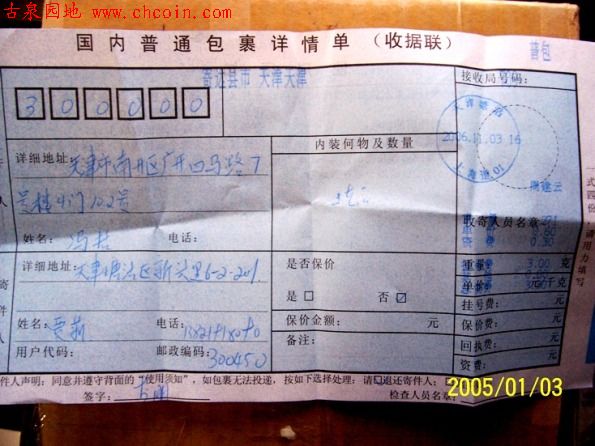 古泉园地 www.chcoin.com
国内普通包裹详情单 (收据联)
普包
寄达县市 天津天津
接收局号码:
300000
2006.11.03 16
详细地址: 天津市南开区广开四马路7
内装何物及数量
号楼 门102号
收寄人员名章:
姓名: 冯 电话:
详细地址: 天津塘沽区新 里6-2-201
是否保价
是 否 ☑
重量: 克
单价: 元/千克
挂号费: 元
姓名: 贾莉 电话:
保价金额: 元
保价费: 元
用户代码: 邮政编码: 300450
备注:
回执费: 元
资费: 元
件人声明: 同意并遵守背面的“使用须知”, 如包裹无法投递, 按如下选择处理: 请 退还寄件人;
签字: 检查人员名章:
式四份
请用力填写
2005/01/03